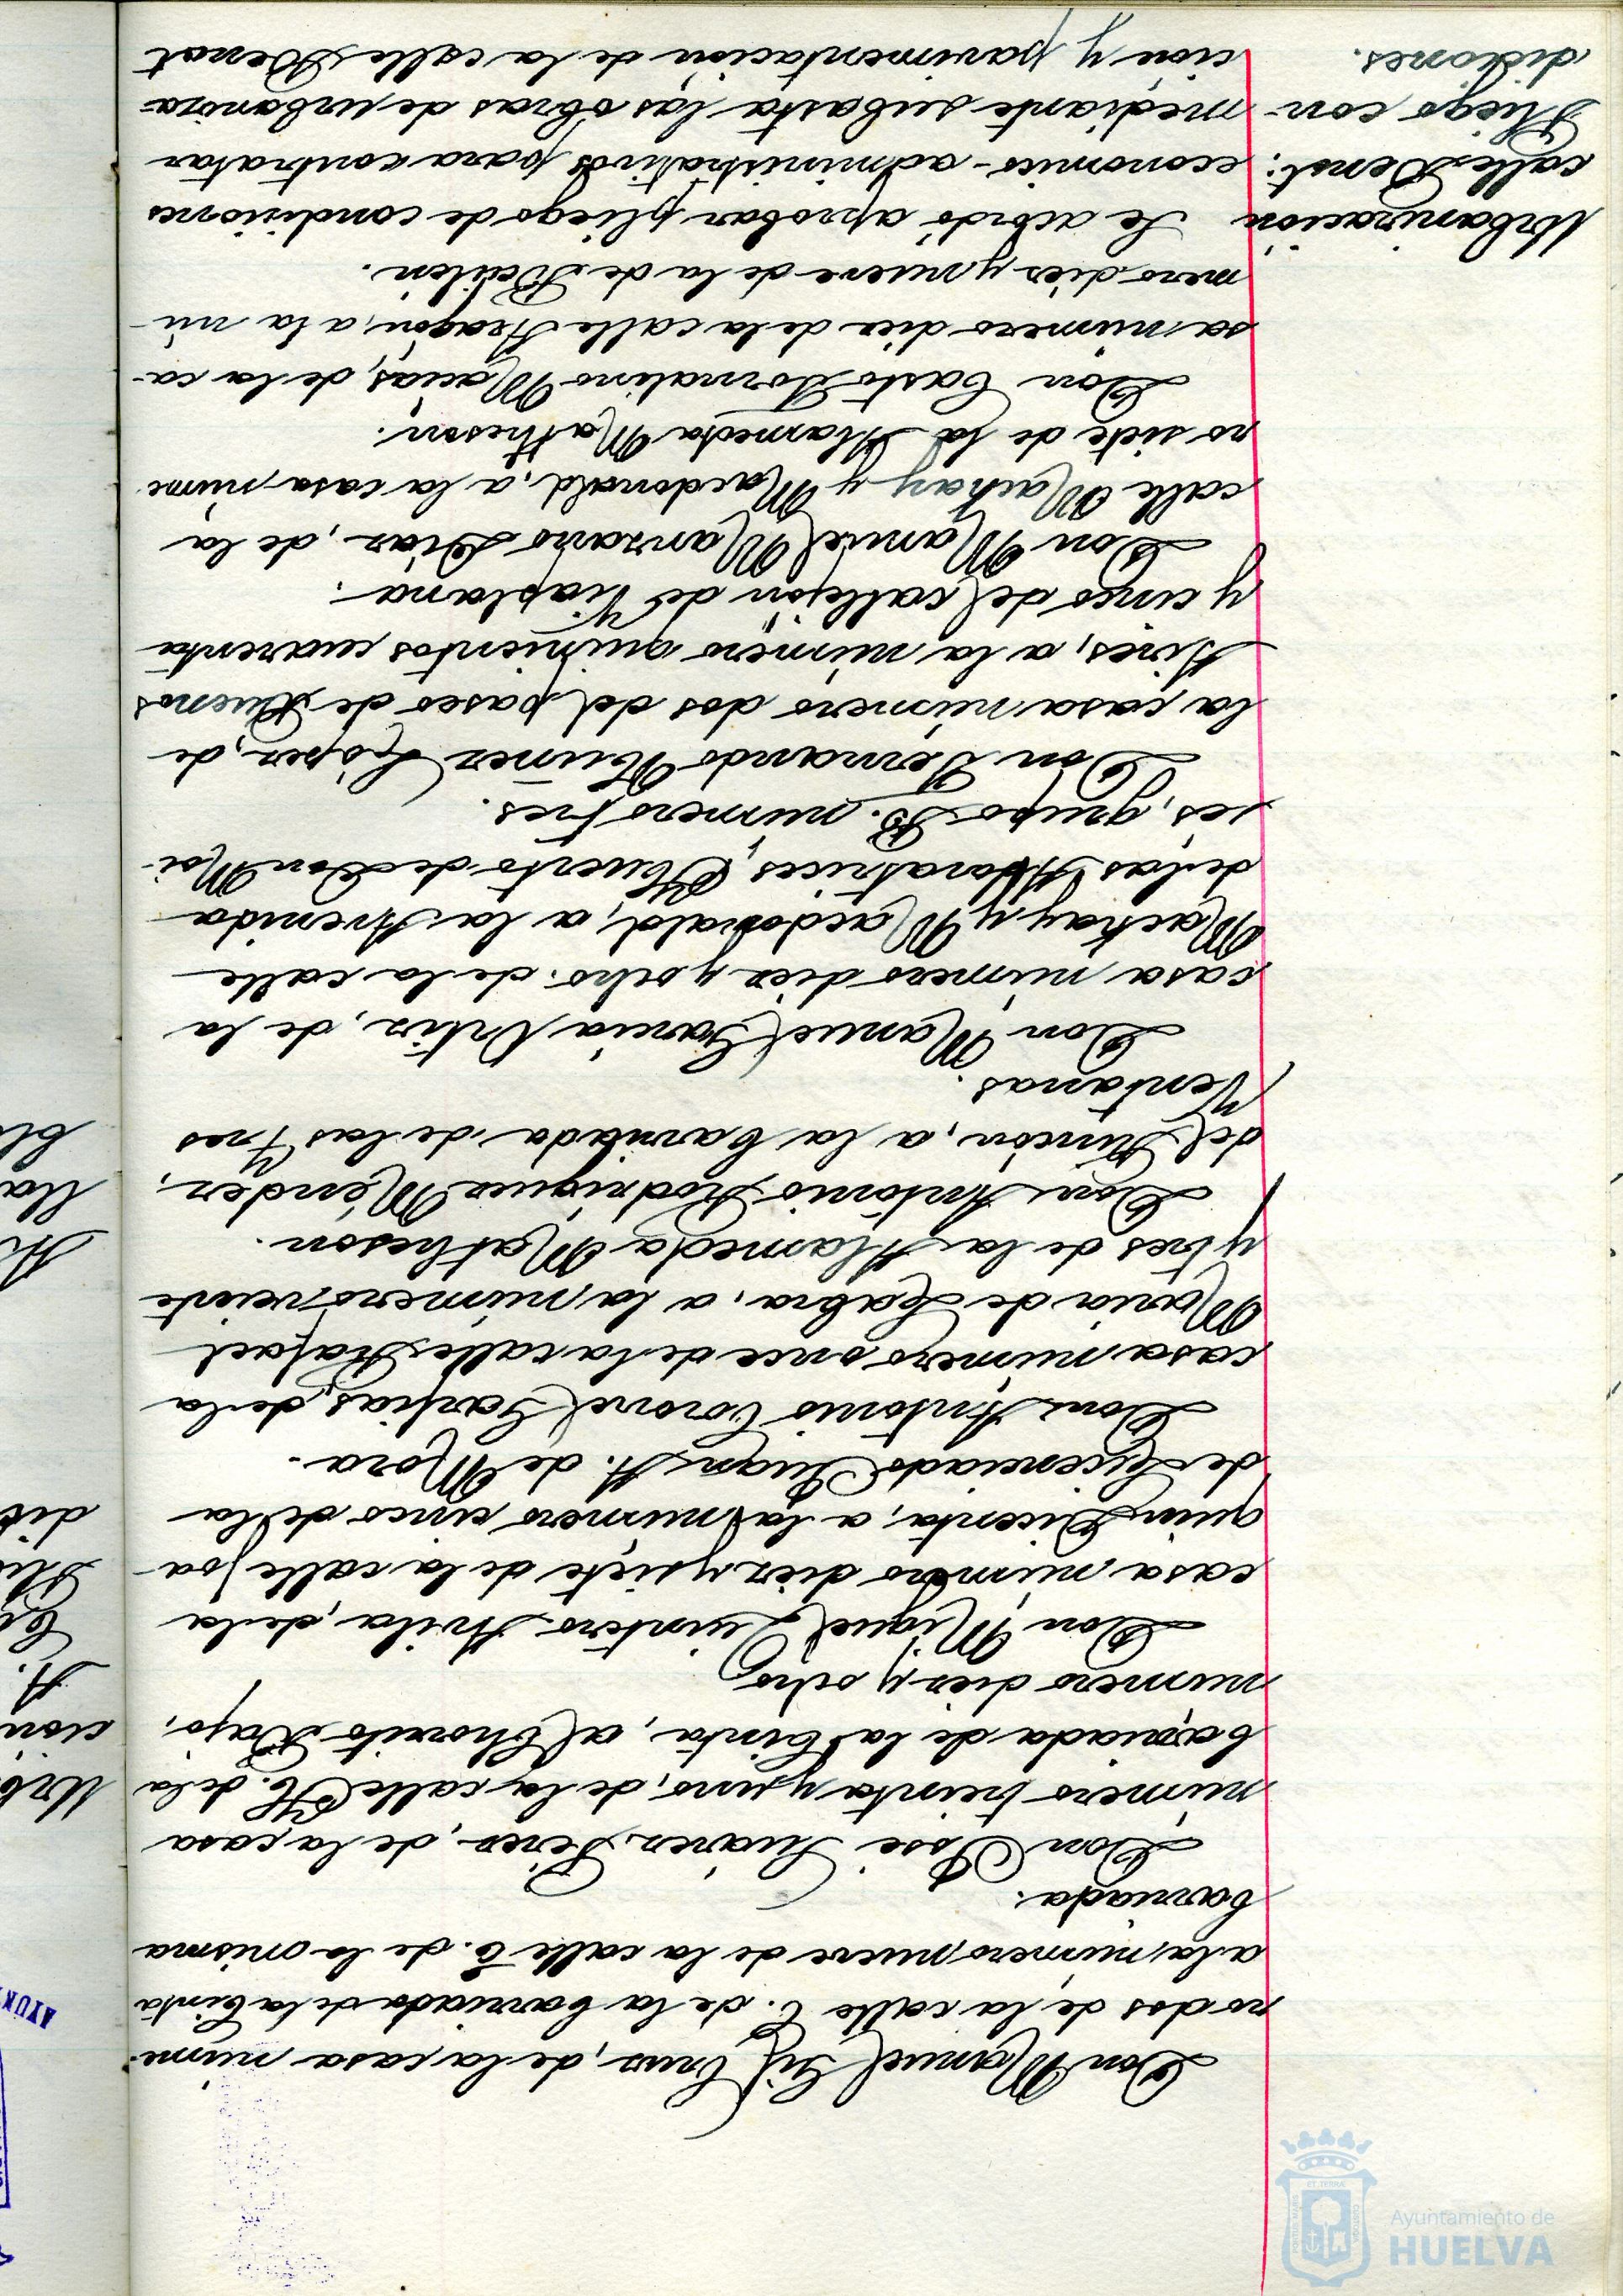 Don Manuel Gil Cruz, de la casa núme-
ro dos de la calle C. de la barriada de la Cinta
a la número nueve de la calle E. de la misma
barriada.
Don José Suárez Pérez, de la casa
número treinta y uno, de la calle H. de la
barriada de la Cinta, al Chorrito Bajo,
número diez y ocho
Don Miguel Quintero Avila, de la
casa número diez y siete de la calle Joa-
quin Dicenta, a la número cinco de la
de Licenciado Juan A. de Mora.
Don Antonio Coronel Garfias, de la
casa número once de la calle Rafael
Maria de Labra, a la número veinte
y tres de la Alameda Matheson.
Don Antonio Rodriguez Méndez,
del Rincón, a la barriada de las Tres
Ventanas.
Don Manuel Garcia Ortiz, de la
casa número diez y ocho, de la calle
Mackay y Macdonald, a la Avenida
de las Adoratrices, Huerto de Don Moi-
sés, grupo B. número tres.
Don Fernando Núñez López, de
la casa número dos del paseo de Buenos
Aires, a la número quinientos cuarenta
y cinco del callejón de Viaplana.
Don Manuel Manzano Diaz, de la
calle Mackay y Macdonald, a la casa núme-
ro siete de la Alameda Matheson.
Don Casto Tornalino Macias, de la ca-
sa número diez de la calle Aragón, a la nú-
mero diez y nueve de la de Bailén.
Urbanización
calle Benot:
Pliego con-
diciones.
Se acordó aprobar pliego de condiciones
económico-administrativas para contratar
mediante subasta las obras de urbaniza-
ción y pavimentación de la calle Benot
Ayuntamiento de
HUELVA